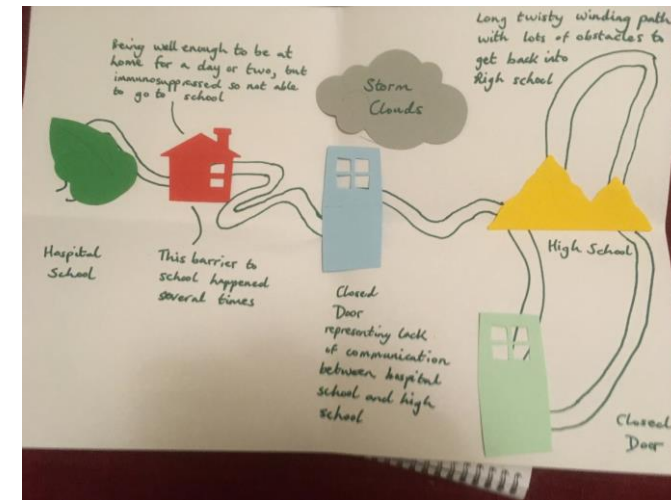 Being well enough to be at
home for a day or two, but
immunosuppressed so not able
to go to school
Storm
Clouds
Long twisty winding path
with lots of obstacles to
get back into
High school
Hospital
School
This barrier to
school happened
several times
Closed
Door
representing lack
of communication
between hospital
school and high
school
High School
Closed
Door